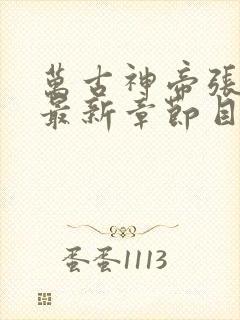 萬古神帝張
最新章節目
蛋蛋1113